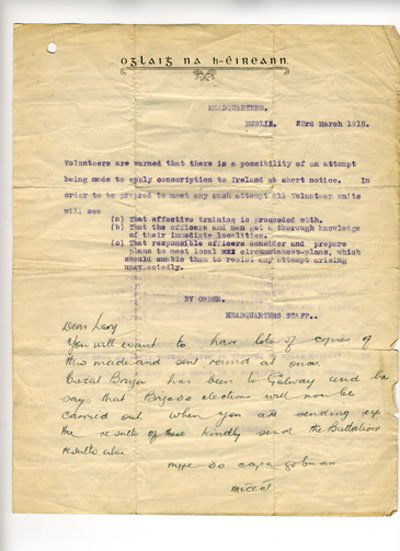 Óglaiġ na h-Éireann.
HEADQUARTERS.
DUBLIN. 23rd March 1918.
Volunteers are warned that there is a possibility of an attempt
being made to apply conscription to Ireland at short notice. In
order to be prepred to meet any such attempt all Volunteer units
will see
(a) That effective training is proceeded with.
(b) That the officers and men get a thorough knowledge
of their immediate localities.
(c) That responsible officers consider and prepare
plans to meet local circumstances-plans, which
should enable them to resist any attempt arising
unexpectedly.
BY ORDER.
HEADQUARTERS STAFF..
Dear
You will want to have lots of copies of
this made and sent round at once.
has been to Galway and he
says that Brigade elections will now be
carried out. When you are sending up
the results of these kindly send the Battalion
results also.
Mise do
Mícéal